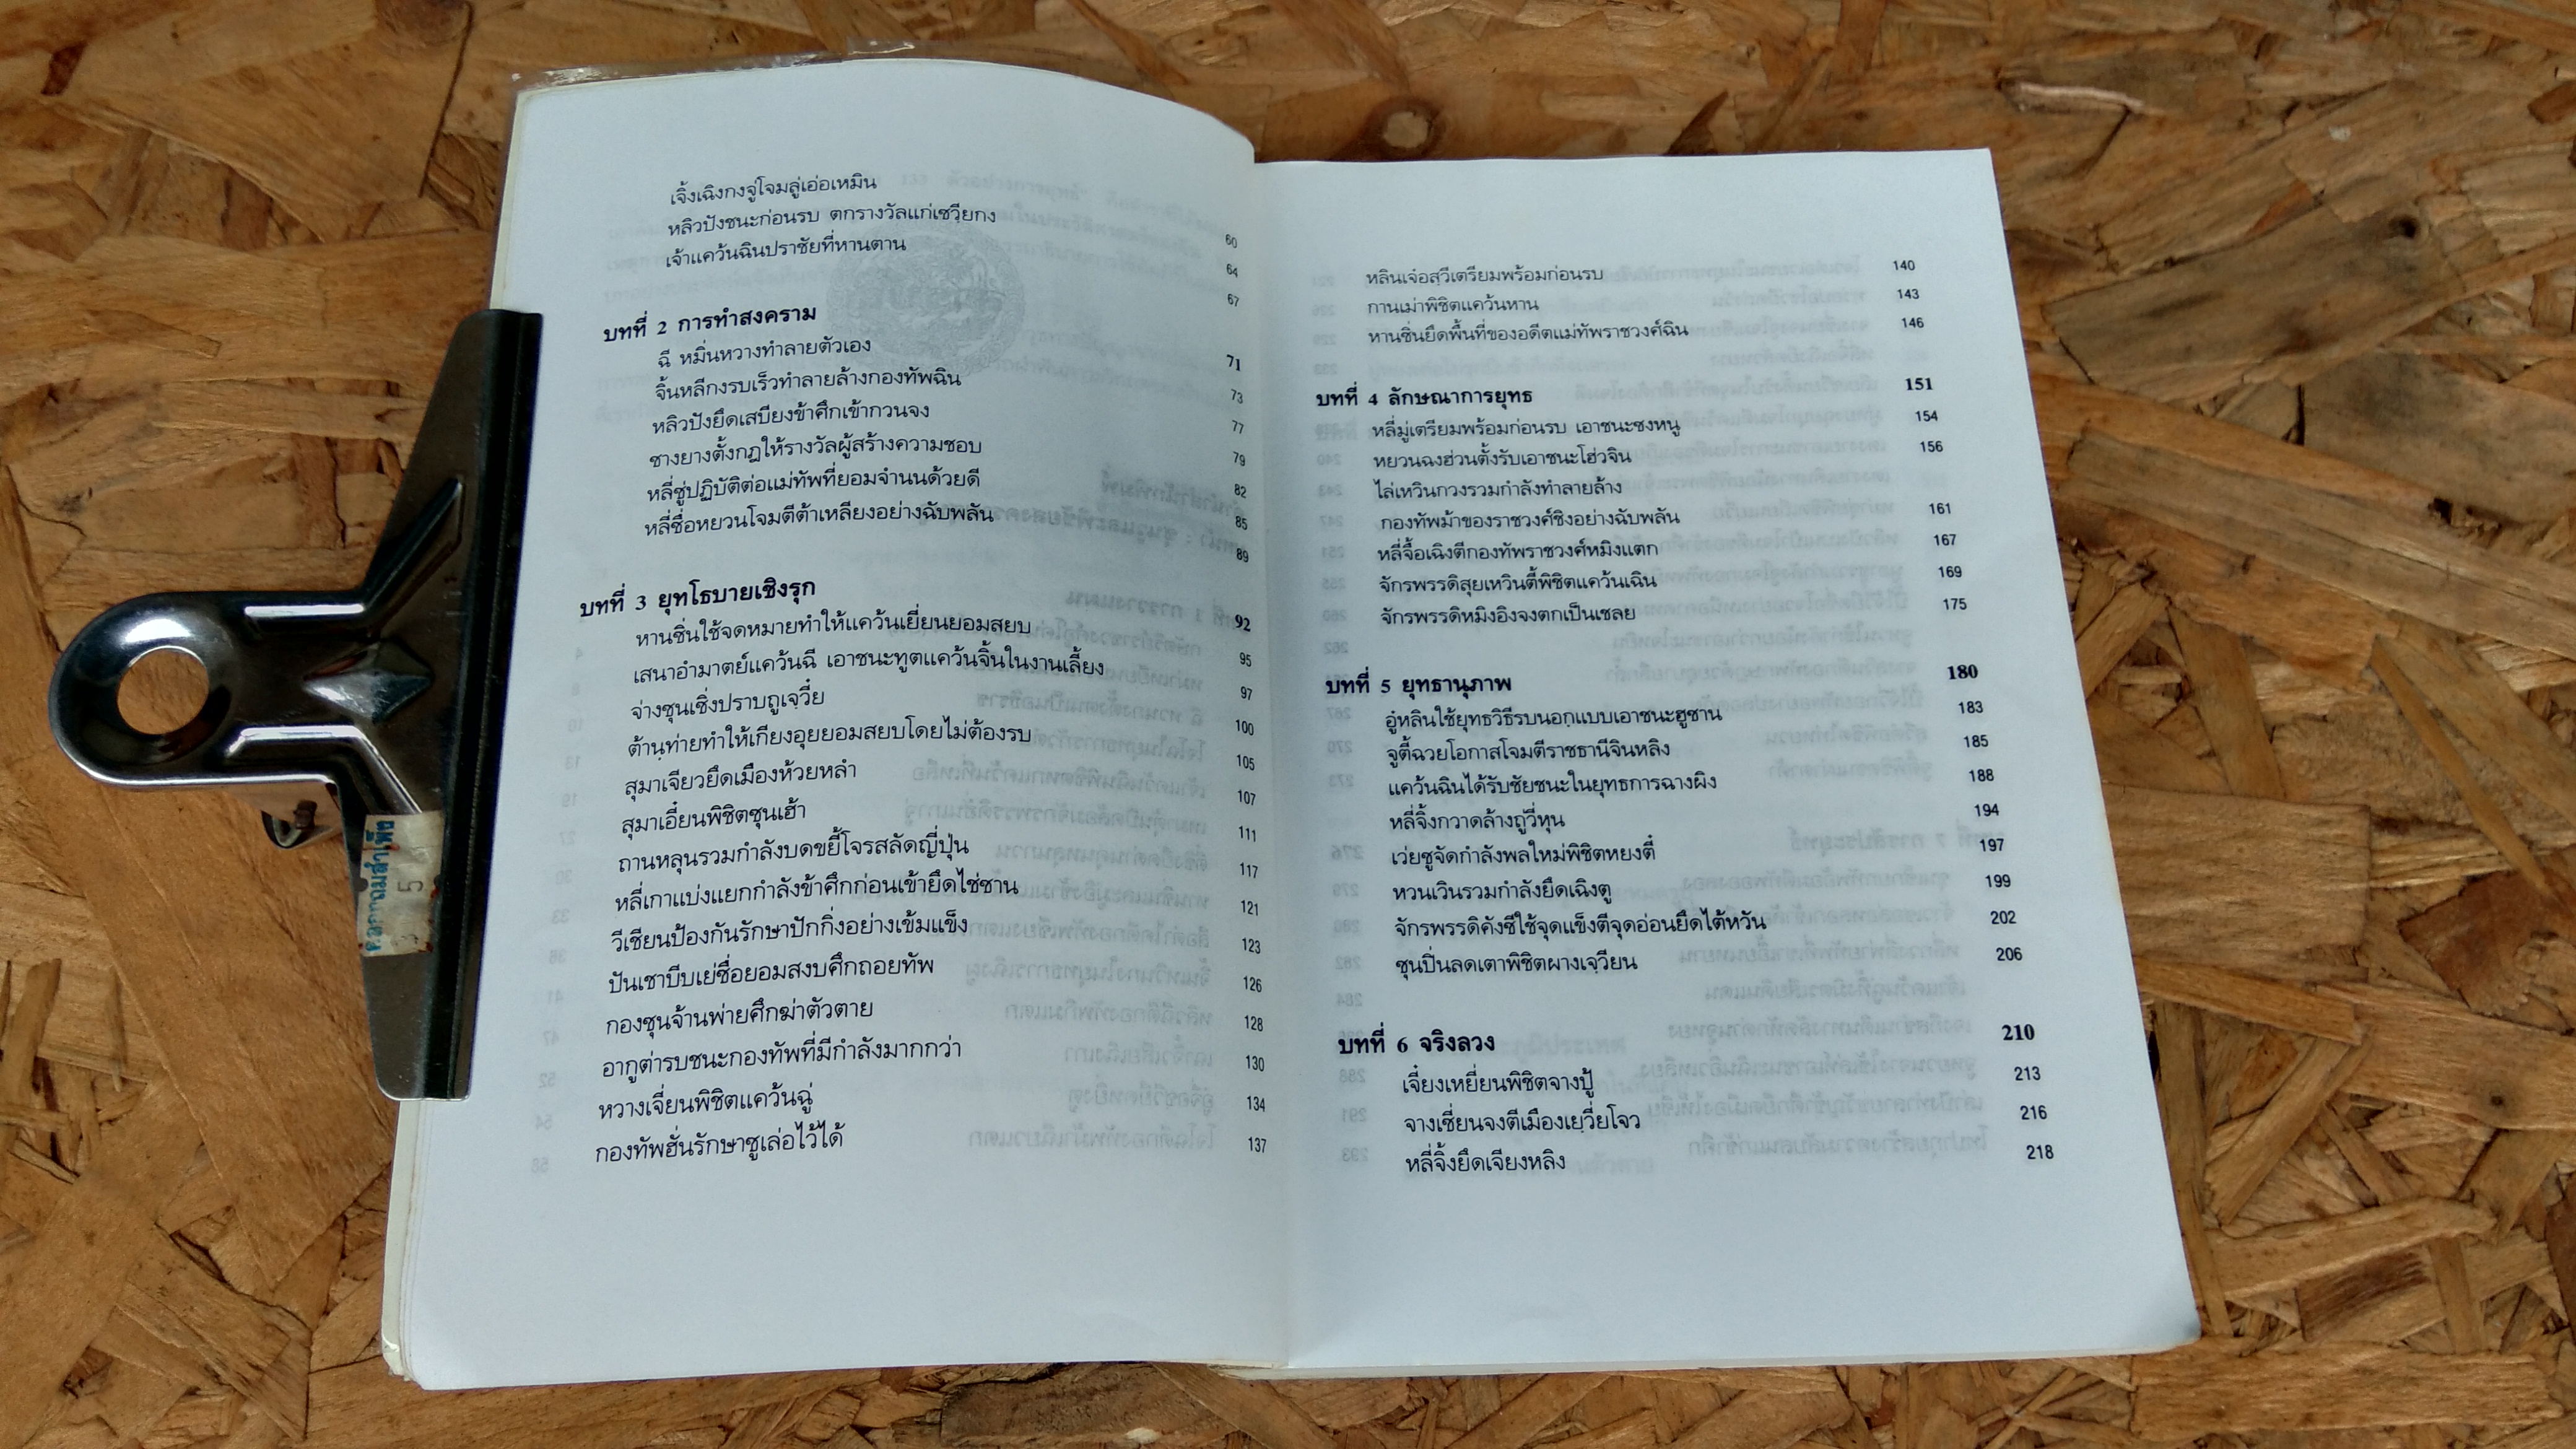 เจิ้งเฉิงกงจู่โจมลู่เอ่อเหมิน 60
หลิวปังชนะก่อนรบ ตกรางวัลแก่เซวียกง 64
เจ้าแคว้นฉินปราชัยที่หานตาน 67
บทที่ 2 การทำสงคราม 71
ฉี หมิ่นหวางทำลายตัวเอง 73
จิ้นหลีกงรบเร็วทำลายล้างกองทัพฉิน 77
หลิวปังยึดเสบียงข้าศึกเข้ากวนจง 79
ซางยางตั้งกฎให้รางวัลผู้สร้างความชอบ 82
หลี่ซู่ปฏิบัติต่อแม่ทัพที่ยอมจำนนด้วยดี 85
หลี่ซื่อหยวนโจมตีต้าเหลียงอย่างฉับพลัน 89
บทที่ 3 ยุทโธบายเชิงรุก 92
หานซิ่นใช้จดหมายทำให้แคว้นเยี่ยนยอมสยบ 95
เสนาอำมาตย์แคว้นฉี เอาชนะทูตแคว้นจิ้นในงานเลี้ยง 97
จ่างซุนเซิ่งปราบถูเจวี๋ย 100
ต้านท่ายทำให้เกียงอุยยอมสยบโดยไม่ต้องรบ 105
สุมาเจียวยึดเมืองห้วยหลำ 107
สุมาเอี๋ยนพิชิตซุนเฮ้า 111
ถานหลุนรวมกำลังบดขยี้โจรสลัดญี่ปุ่น 117
หลี่เกาแบ่งแยกกำลังข้าศึกก่อนเข้ายึดไช่ซาน 121
วีเซียนป้องกันรักษาปักกิ่งอย่างเข้มแข็ง 123
ปันเชาบีบเย่ซื่อยอมสงบศึกถอยทัพ 126
กองซุนจ้านพ่ายศึกฆ่าตัวตาย 128
อากูต่ารบชนะกองทัพที่มีกำลังมากกว่า 130
หวางเจี่ยนพิชิตแคว้นฉู่ 134
กองทัพฮั่นรักษาซูเล่อไว้ได้ 137
หลินเจ๋อสวีเตรียมพร้อมก่อนรบ 140
กานเม่าพิชิตแคว้นหาน 143
หานซิ่นยึดพื้นที่ของอดีตแม่ทัพราชวงศ์ฉิน 146
บทที่ 4 ลักษณาการยุทธ 151
หลี่มู่เตรียมพร้อมก่อนรบ เอาชนะซงหนู 154
หยวนฉงฮ่วนตั้งรับเอาชนะโฮ่วจิน 156
ไล่เหวินกวงรวมกำลังทำลายล้าง
กองทัพม้าของราชวงศ์ชิงอย่างฉับพลัน 161
หลี่จื้อเฉิงตีกองทัพราชวงศ์หมิงแตก 167
จักรพรรดิสุยเหวินตี้พิชิตแคว้นเฉิน 169
จักรพรรดิหมิงอิงจงตกเป็นเชลย 175
บทที่ 5 ยุทธานุภาพ 180
อู๋หลินใช้ยุทธวิธีรบนอกแบบเอาชนะฮูซาน 183
จูตี้ฉวยโอกาสโจมตีราชธานีจินหลิง 185
แคว้นฉินได้รับชัยชนะในยุทธการฉางผิง 188
หลี่จิ้งกวาดล้างถูวี่หุน 194
เว่ยซูจัดกำลังพลใหม่พิชิตหยงตี๋ 197
หวนเวินรวมกำลังยึดเฉิงตู 199
จักรพรรดิคังซีใช้จุดแข็งตีจุดอ่อนยึดไต้หวัน 202
ซุนปิ่นลดเตาพิชิตผางเจวียน 206
บทที่ 6 จริงลวง 210
เจี๋ยงเหยี่ยนพิชิตจางปู้ 213
จางเซี่ยนจงตีเมืองเยวี่ยโจว 216
หลี่จิ้งยึดเจียงหลิง 218
5